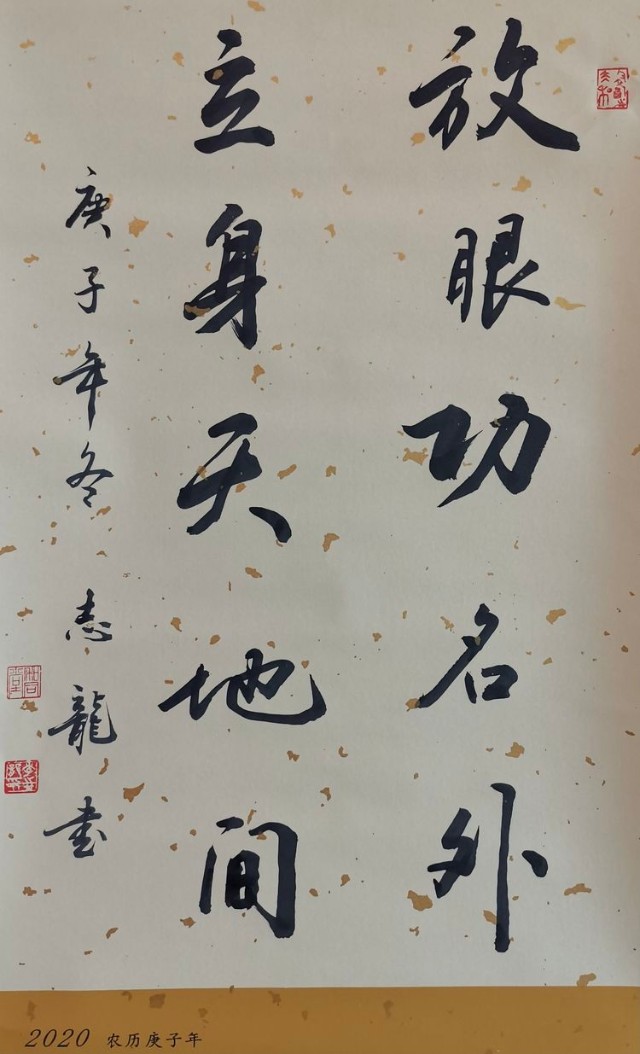 放眼功名外
立身天地间
庚子年冬 志龍书
2020 农历庚子年